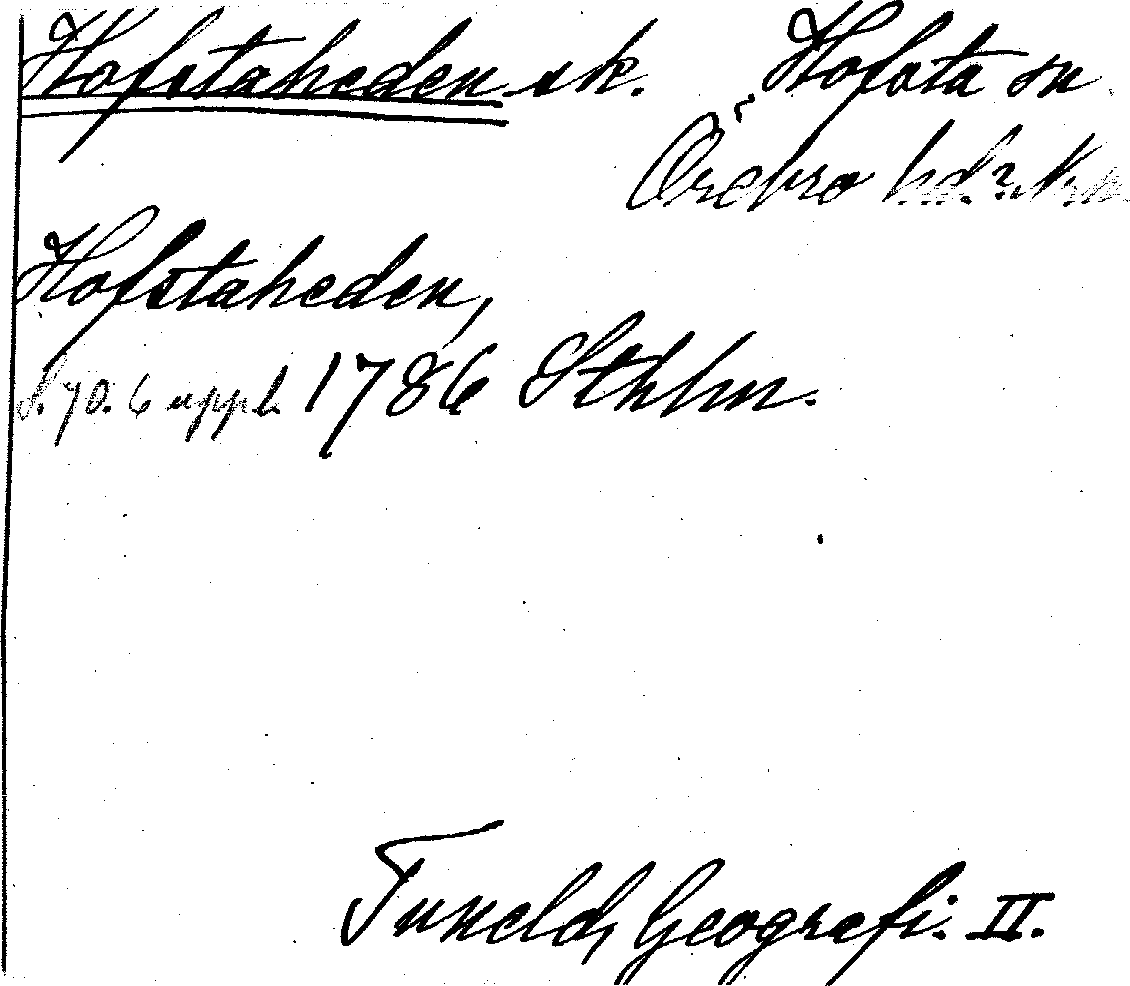 Hofstaheden sk. Hofsta sn
Örebro hd. Nrk.
Hofstaheden,
S. 70. 6 uppl. 1786 Sthlm.
Tuneld, Geografi. II.